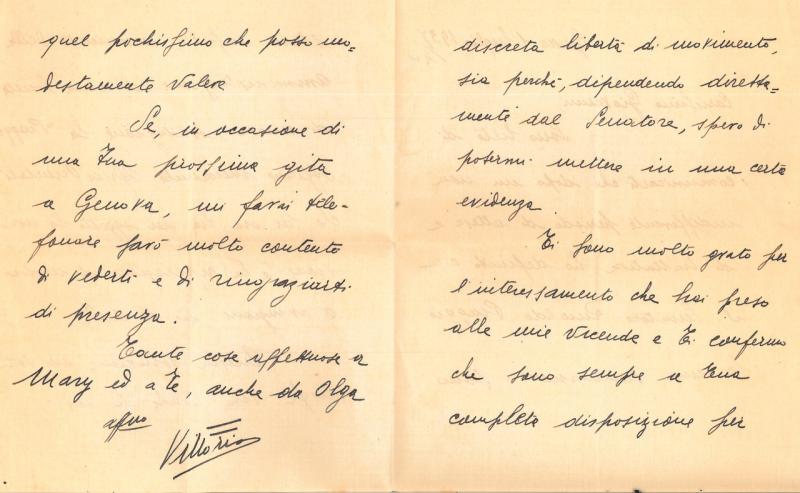 quel pochissimo che posso mo=
destamente valere
Se, in occasione di
una Tua prossima gita
a Genova, mi farai tele-
fonare sarò molto contento
di vederti e di ringraziarti
di presenza.
Tante cose affettuose a
Mary ed a Te, anche da Olga
affmo
Vittorio
discreta libertà di movimento,
sia perché, dipendendo diretta=
mente dal Senatore, spero di
potermi mettere in una certa
evidenza.
Ti sono molto grato per
l'interessamento che hai preso
alle mie vicende e Ti confermo
che sono sempre a Tua
completa disposizione per